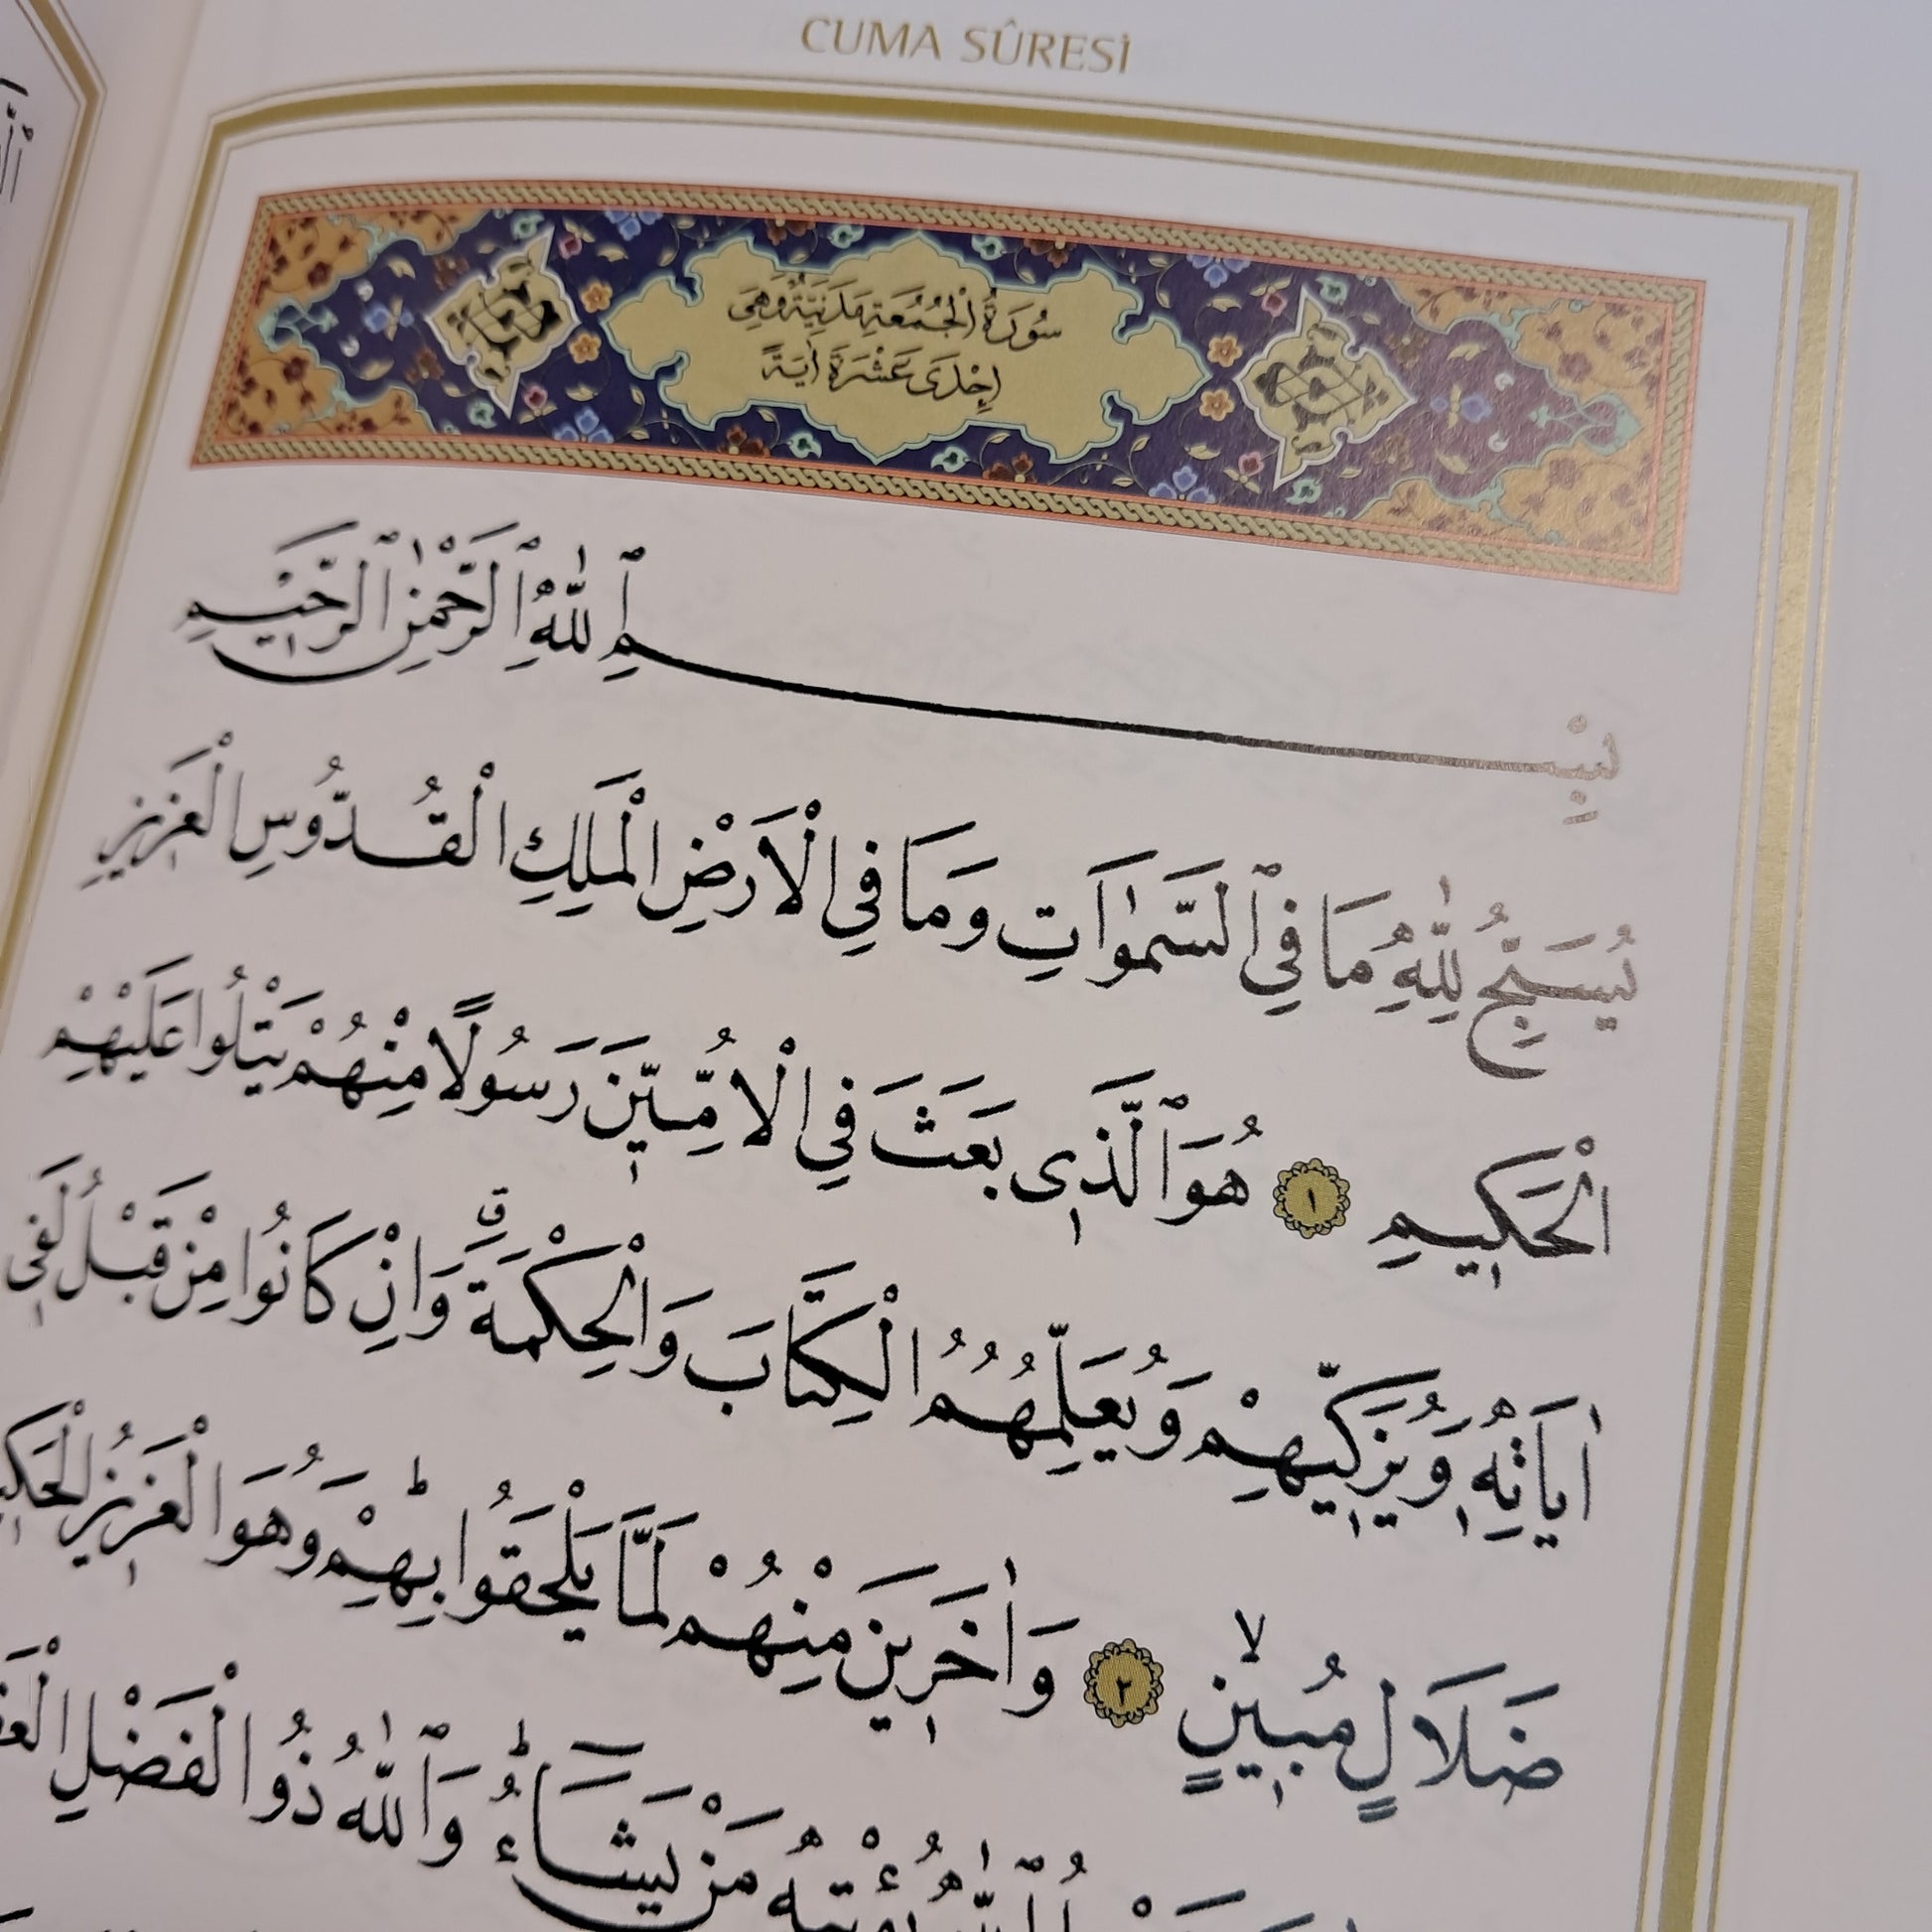 CUMA SÛRESİ
سُورَةُ الْجُمُعَةِ مَدَنِيَّةٌ وَهِيَ
اِحْدٰى عَشْرَةَ اٰيَةً
بِسْمِ ٱللّٰهِ ٱلرَّحْمٰنِ ٱلرَّحٖيمِ
يُسَبِّحُ لِلّٰهِ مَا فِي ٱلسَّمٰوَاتِ وَمَا فِي الْاَرْضِ الْمَلِكِ الْقُدُّوسِ الْعَزٖيزِ
الْحَكٖيمِ ١ هُوَ ٱلَّذٖى بَعَثَ فِي الْاُمِّيّٖنَ رَسُولًا مِنْهُمْ يَتْلُوا عَلَيْهِمْ
اٰيَاتِهٖ وَيُزَكّٖيهِمْ وَيُعَلِّمُهُمُ الْكِتَابَ وَالْحِكْمَةَۗ وَاِنْ كَانُوا مِنْ قَبْلُ لَفٖى
ضَلَالٍ مُبٖينٍۙ ٢ وَاٰخَرٖينَ مِنْهُمْ لَمَّا يَلْحَقُوا بِهِمْۜ وَهُوَ الْعَزٖيزُ
مَنْ يَشَٓاءُۜ وَٱللّٰهُ ذُو الْفَضْلِ